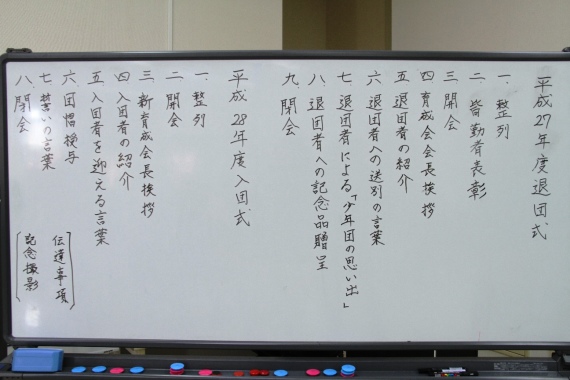 平成27年度退団式
一、整列
二、皆勤者表彰
三、開会
四、育成会会長挨拶
五、退団者の紹介
六、退団者への送別の言葉
七、退団者による「少年団の思い出」
八、退団者への記念品贈呈
九、閉会
平成28年度入団式
一、整列
二、開会
三、新育成会長挨拶
四、入団者の紹介
五、入団者を迎える言葉
六、団帽授与
七、誓いの言葉
八、閉会
伝達事項
記念撮影